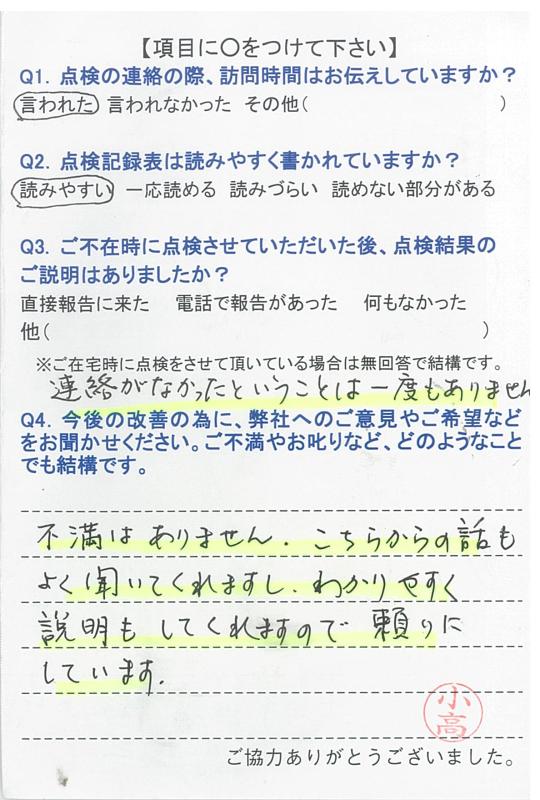 【項目に〇をつけて下さい】
Q1. 点検の連絡の際、訪問時間はお伝えしていますか？
言われた 言われなかった その他( )
Q2. 点検記録表は読みやすく書かれていますか？
読みやすい 一応読める 読みづらい 読めない部分がある
Q3. ご不在時に点検させていただいた後、点検結果の
ご説明はありましたか？
直接報告に来た 電話で報告があった 何もなかった
他( )
※ご在宅時に点検をさせて頂いている場合は無回答で結構です。
連絡がなかったということは一度もありません
Q4. 今後の改善の為に、弊社へのご意見やご希望など
をお聞かせください。ご不満やお叱りなど、どのようなこと
でも結構です。
不満はありません. こちらからの話も
よく聞いてくれますし. わかりやすく
説明もしてくれますので頼りに
しています.
小高
ご協力ありがとうございました。